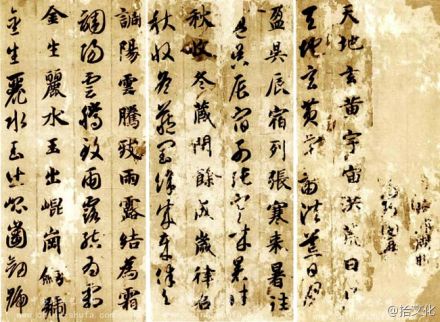 天地玄黃宇宙洪荒日
天地玄黃宇宙洪荒日月
盈昃辰宿列張寒來暑往
盈昃辰宿列張寒來暑往
秋收冬藏閏餘成歲律呂
秋收冬藏閏餘成歲律呂
調陽雲騰致雨露結為霜
調陽雲騰致雨露結為霜
金生麗水玉出崐崗劍號
金生麗水玉出崐崗劍號
@拾文化